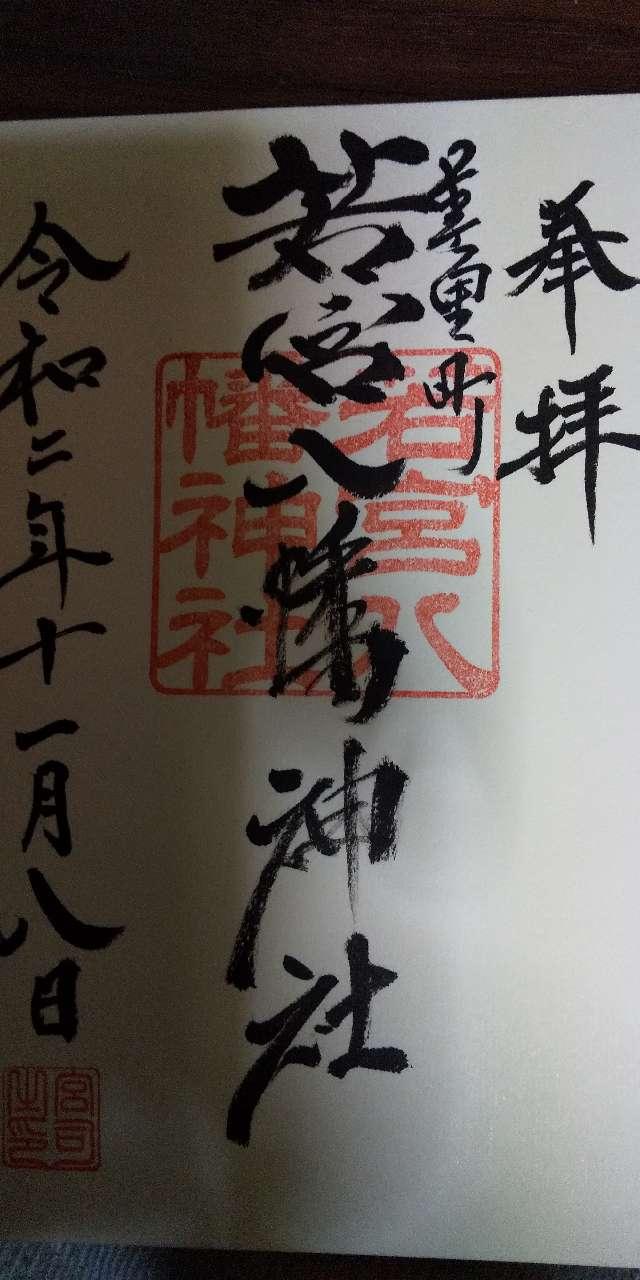 奉拝
美里町
若宮八幡神社
若宮八
幡神社
令和二年十一月八日
宮司
之印